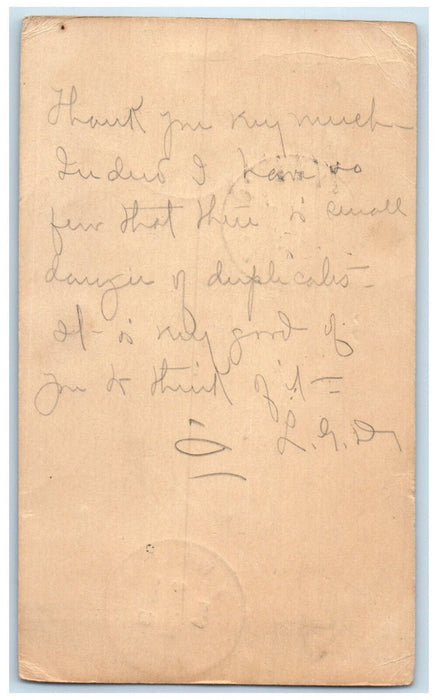 Thank you very much –
Indeed I have so
few that there is small
danger of duplicates –
It is very good of
you to think of it –
L. G. D.